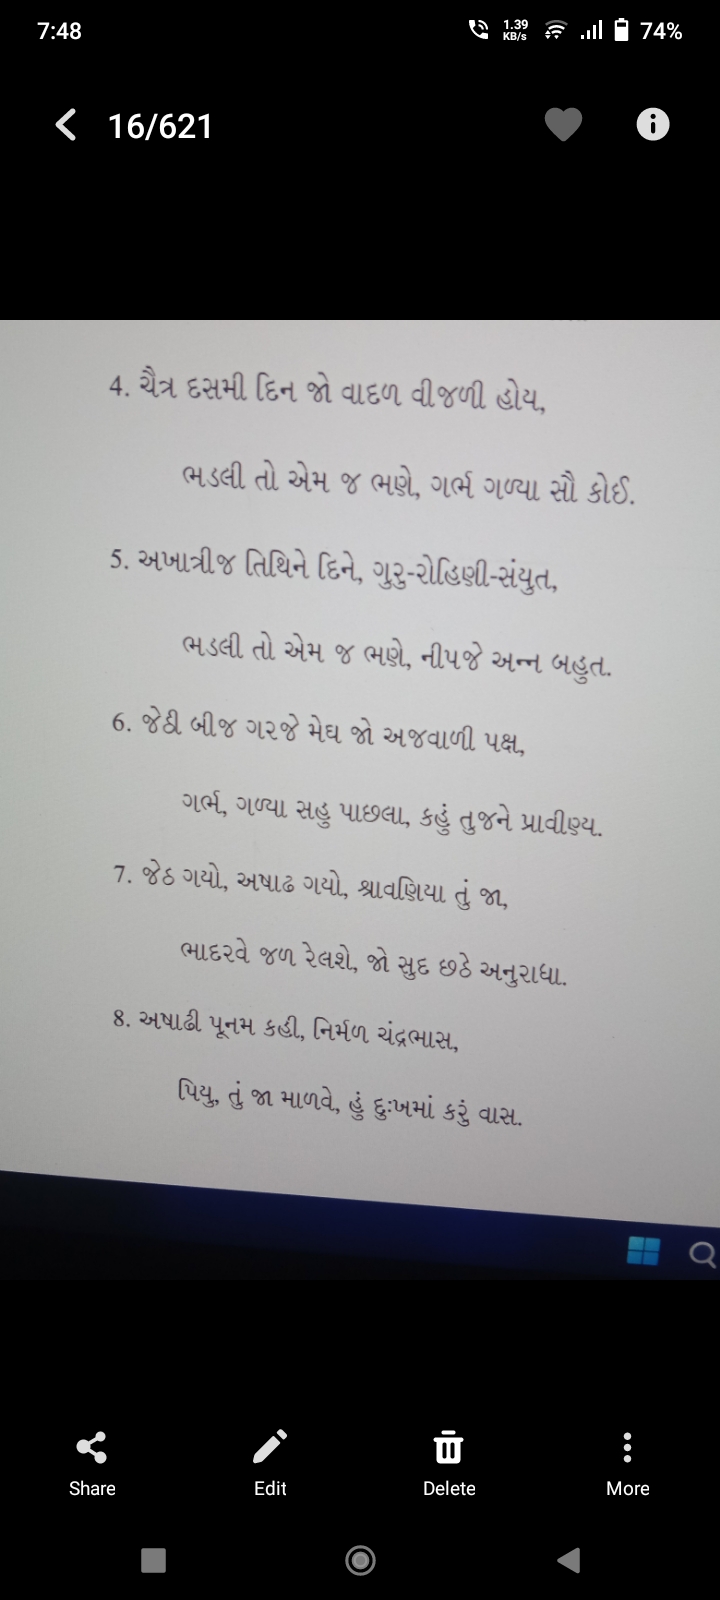 7:48
1.39 KB/s
74%
16/621
4. ચૈત્ર દસમી દિન જો વાદળ વીજળી હોય,
ભડલી તો એમ જ ભણે, ગર્ભ ગળ્યા સૌ કોઈ.
5. અખાત્રીજ તિથિને દિને, ગુરુ-રોહિણી-સંયુત,
ભડલી તો એમ જ ભણે, નીપજે અન્ન બહુત.
6. જેઠી બીજ ગરજે મેઘ જો અજવાળી પક્ષ,
ગર્ભ, ગળ્યા સહુ પાછલા, કહું તુજને પ્રાવીણ્ય.
7. જેઠ ગયો, અષાઢ ગયો, શ્રાવણિયા તું જા,
ભાદરવે જળ રેલશે, જો સુદ છઠે અનુરાધા.
8. અષાઢી પૂનમ કહી, નિર્મળ ચંદ્રભાસ,
પિયુ, તું જા માળવે, હું દુઃખમાં કરું વાસ.
Share
Edit
Delete
More